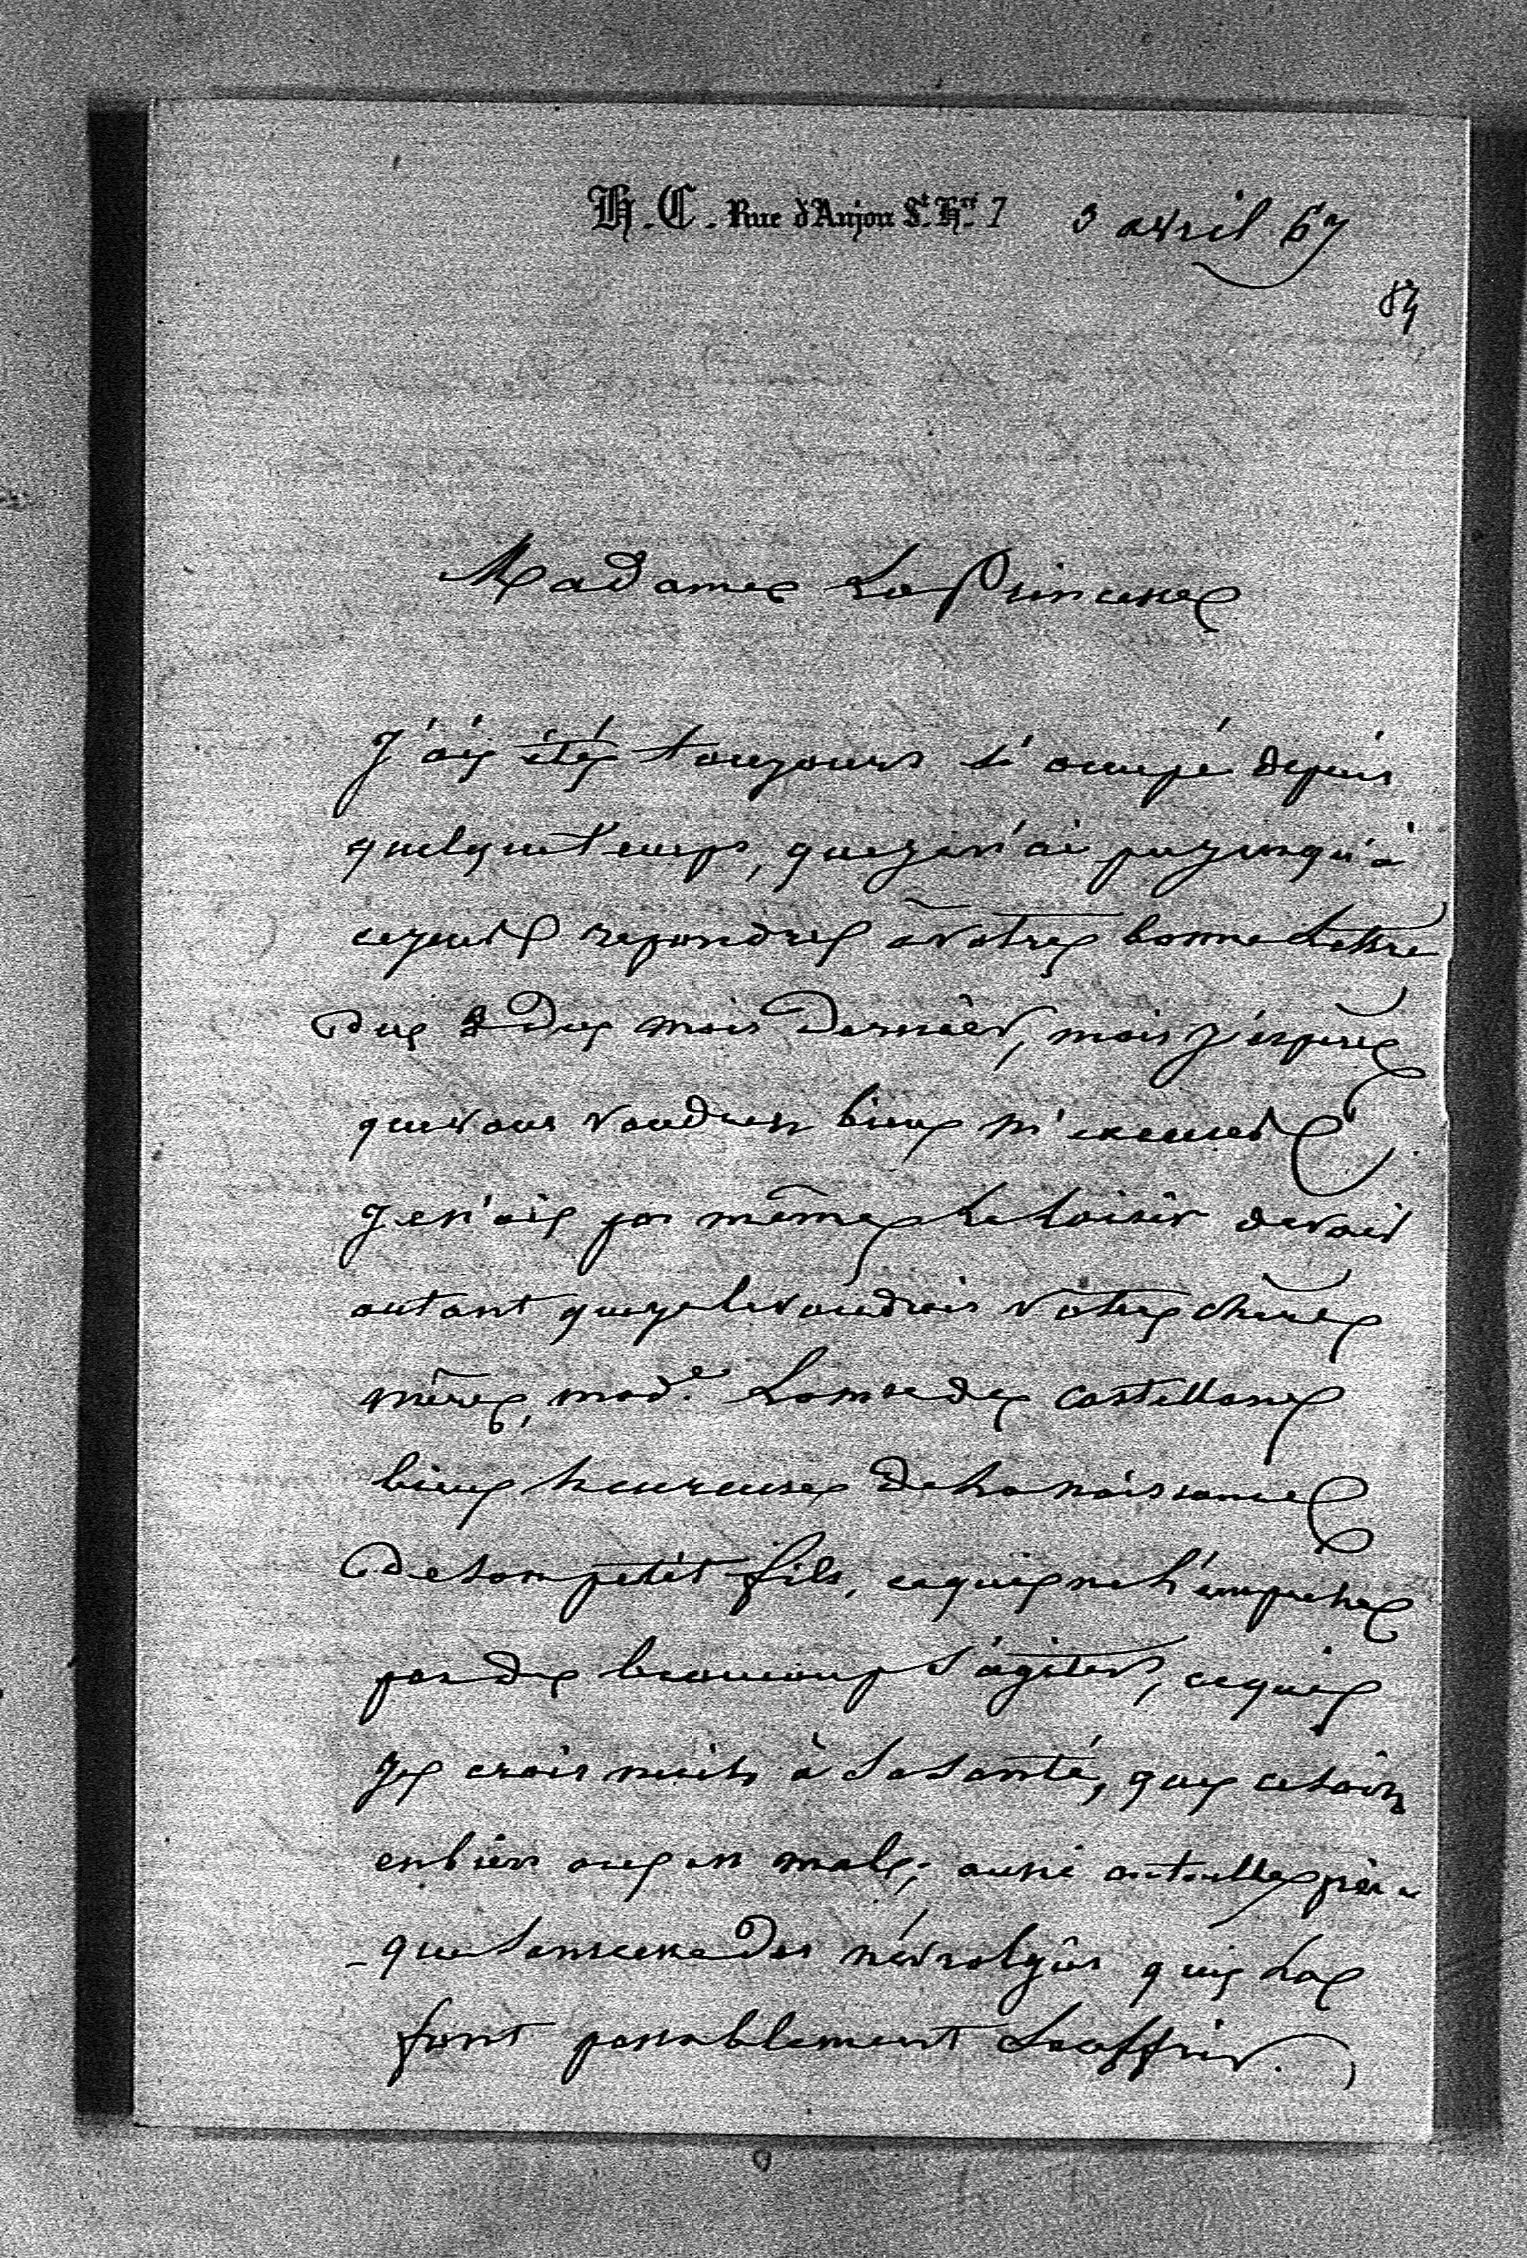 H. C. Rue d'Anjou St. Hré 7 3 avril 67
84
Madame La Princesse
J'ai été toujours si occupé depuis
quelque temps, que je n'ai pu jusqu'à
ce jour repondre à votre bonne Lettre
du 2 du mois dernier, mais j'espère
que vous voudrez bien m'excuser
Je n'ai pas même Le Loisir de voir
autant que je le voudrais votre chère
mère, made La msse de Castellane
bien heureuse de La naissance
de son petit fils, ce qui ne L'empeche
pas de beaucoup s'agiter, ce qui
je crois nuit à Sa Santé, que ce soit
en bien ou en mal; aussi a-t-elle pres
- que Sans cesse des névralgies qui La
font passablement Souffrir.